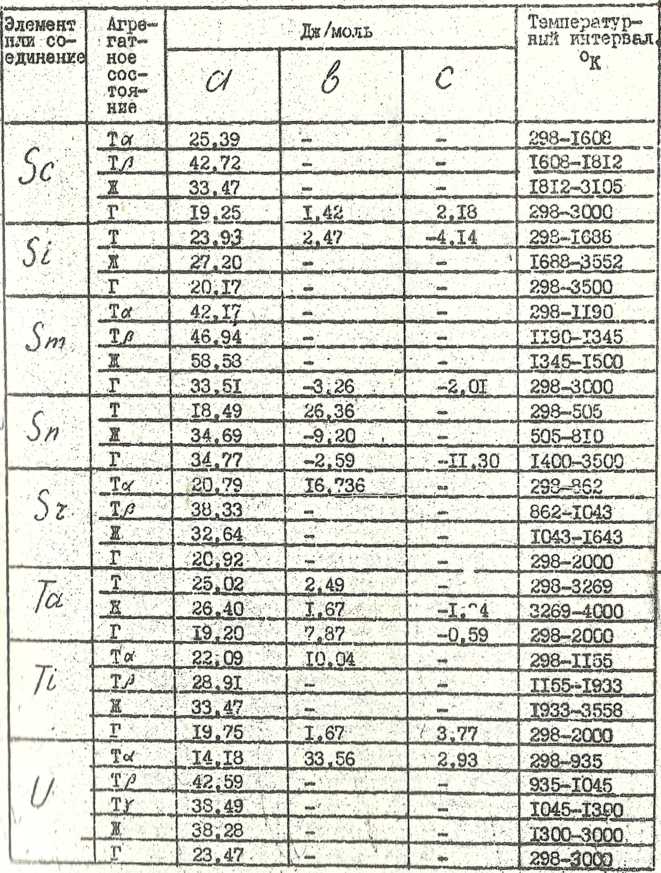 Элемент или соединение | Агрегатное состояние | Дж/моль | Температурный интервал, °К
a | в | c
Sc | Тα | 25,39 | – | – | 298–1608
Тβ | 42,72 | – | – | 1608–1812
Ж | 33,47 | – | – | 1812–3105
Г | 19,25 | 1,42 | 2,18 | 298–3000
Si | Т | 23,93 | 2,47 | –4,14 | 298–1688
Ж | 27,20 | – | – | 1688–3552
Г | 20,17 | – | – | 298–3500
Sm | Тα | 42,17 | – | – | 298–1190
Тβ | 46,94 | – | – | 1190–1345
Ж | 58,58 | – | – | 1345–1500
Г | 33,51 | –3,26 | –2,01 | 298–3000
Sn | Т | 18,49 | 26,36 | – | 298–505
Ж | 34,69 | –9,20 | – | 505–810
Г | 34,77 | –2,59 | –11,30 | 1400–3500
Sr | Тα | 20,79 | 16,736 | – | 298–862
Тβ | 38,33 | – | – | 862–1043
Ж | 32,64 | – | – | 1043–1643
Г | 20,92 | – | – | 298–2000
Ta | Т | 25,02 | 2,49 | – | 298–3269
Ж | 26,40 | 1,67 | 3269–4000
Г | 19,20 | 7,87 | –0,59 | 298–2000
Ti | Тα | 22,09 | 10,04 | – | 298–1155
Тβ | 28,91 | – | – | 1155–1933
Ж | 33,47 | – | – | 1933–3558
Г | 19,75 | 1,67 | 3,77 | 298–2000
U | Тα | 14,18 | 33,56 | 2,93 | 298–935
Тβ | 42,59 | – | – | 935–1045
Тγ | 38,49 | – | – | 1045–1300
Ж | 38,28 | – | – | 1300–3000
Г | 23,47 | – | – | 298–3000